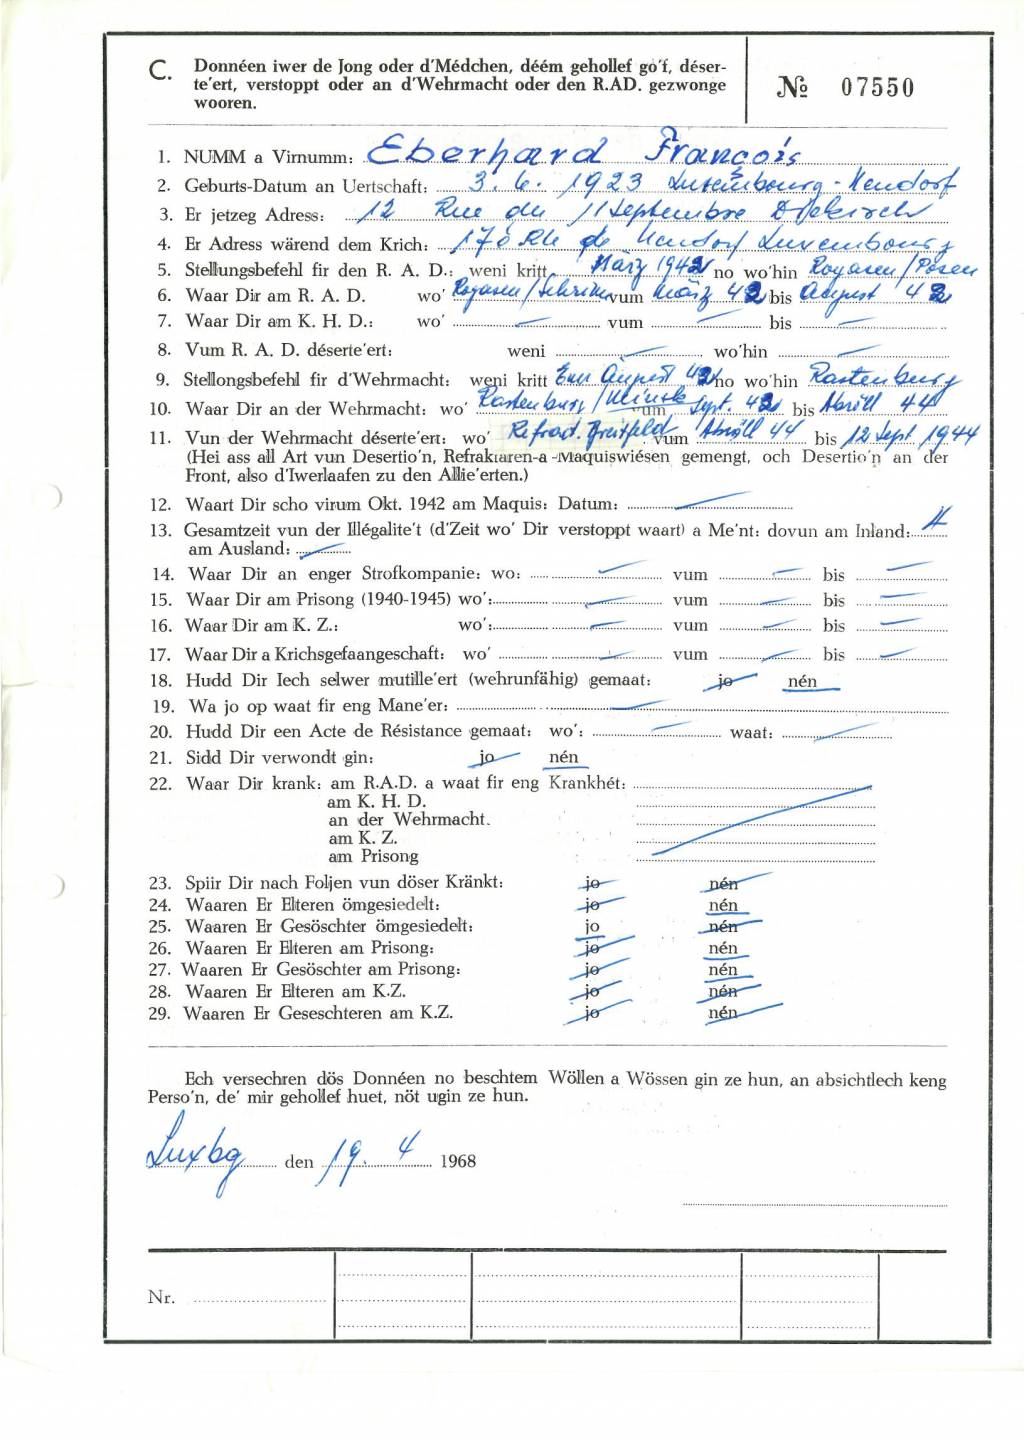 C. Donnéen iwer de Jong oder d'Médchen, déém gehollef go'f, déser-
te'ert, verstoppt oder an d'Wehrmacht oder den R.AD. gezwonge
wooren.
№ 07550
1. NUMM a Virnumm: Eberhard François
2. Geburts-Datum an Uertschaft: 3. 6. 1923 Luxembourg-Neudorf
3. Er jetzeg Adress: 12 Rue du 11 Septembre Diekirch
4. Er Adress wärend dem Krich: 170 Rte de Neudorf Luxembourg
5. Stellungsbefehl fir den R. A. D.: weni kritt März 1942 no wo'hin Rogasen/Posen
6. Waar Dir am R. A. D. wo' Rogasen/Schrimm vum März 42 bis August 42
7. Waar Dir am K. H. D.: wo' vum bis
8. Vum R. A. D. déserte'ert: weni wo'hin
9. Stellongsbefehl fir d'Wehrmacht: weni kritt Enn August 42 no wo'hin Rastenburg
10. Waar Dir an der Wehrmacht: wo' Rastenburg/Minsk vum Sept. 42 bis Abrëll 44
11. Vun der Wehrmacht déserte'ert: wo' Refract. Breitfeld vum Abrëll 44 bis 12 Sept. 1944
(Hei ass all Art vun Desertio'n, Refraktaren-a-Maquiswiésen gemengt, och Desertio'n an der
Front, also d'Iwerlaafen zu den Allie'erten.)
12. Waart Dir scho virum Okt. 1942 am Maquis: Datum:
13. Gesamtzeit vun der Illégalite't (d'Zeit wo' Dir verstoppt waart) a Me'nt: dovun am Inland: 4
am Ausland:
14. Waar Dir an enger Strofkompanie: wo: vum bis
15. Waar Dir am Prisong (1940-1945) wo': vum bis
16. Waar Dir am K. Z.: wo': vum bis
17. Waar Dir a Krichsgefaangeschaft: wo' vum bis
18. Hudd Dir Iech selwer mutille'ert (wehrunfähig) gemaat: jo nén
19. Wa jo op waat fir eng Mane'er:
20. Hudd Dir een Acte de Résistance gemaat: wo': waat:
21. Sidd Dir verwondt gin: jo nén
22. Waar Dir krank: am R.A.D. a waat fir eng Krankhét:
am K. H. D.
an der Wehrmacht.
am K. Z.
am Prisong
23. Spiir Dir nach Foljen vun döser Kränkt: jo nén
24. Waaren Er Elteren ömgesiedelt: jo nén
25. Waaren Er Gesöschter ömgesiedelt: jo nén
26. Waaren Er Elteren am Prisong: jo nén
27. Waaren Er Gesöschter am Prisong: jo nén
28. Waaren Er Elteren am K.Z. jo nén
29. Waaren Er Geseschteren am K.Z. jo nén
Ech versechren dös Donnéen no beschtem Wöllen a Wössen gin ze hun, an absichtlech keng
Perso'n, de' mir gehollef huet, nöt ugin ze hun.
Luxbg den 19. 4 1968
Nr.